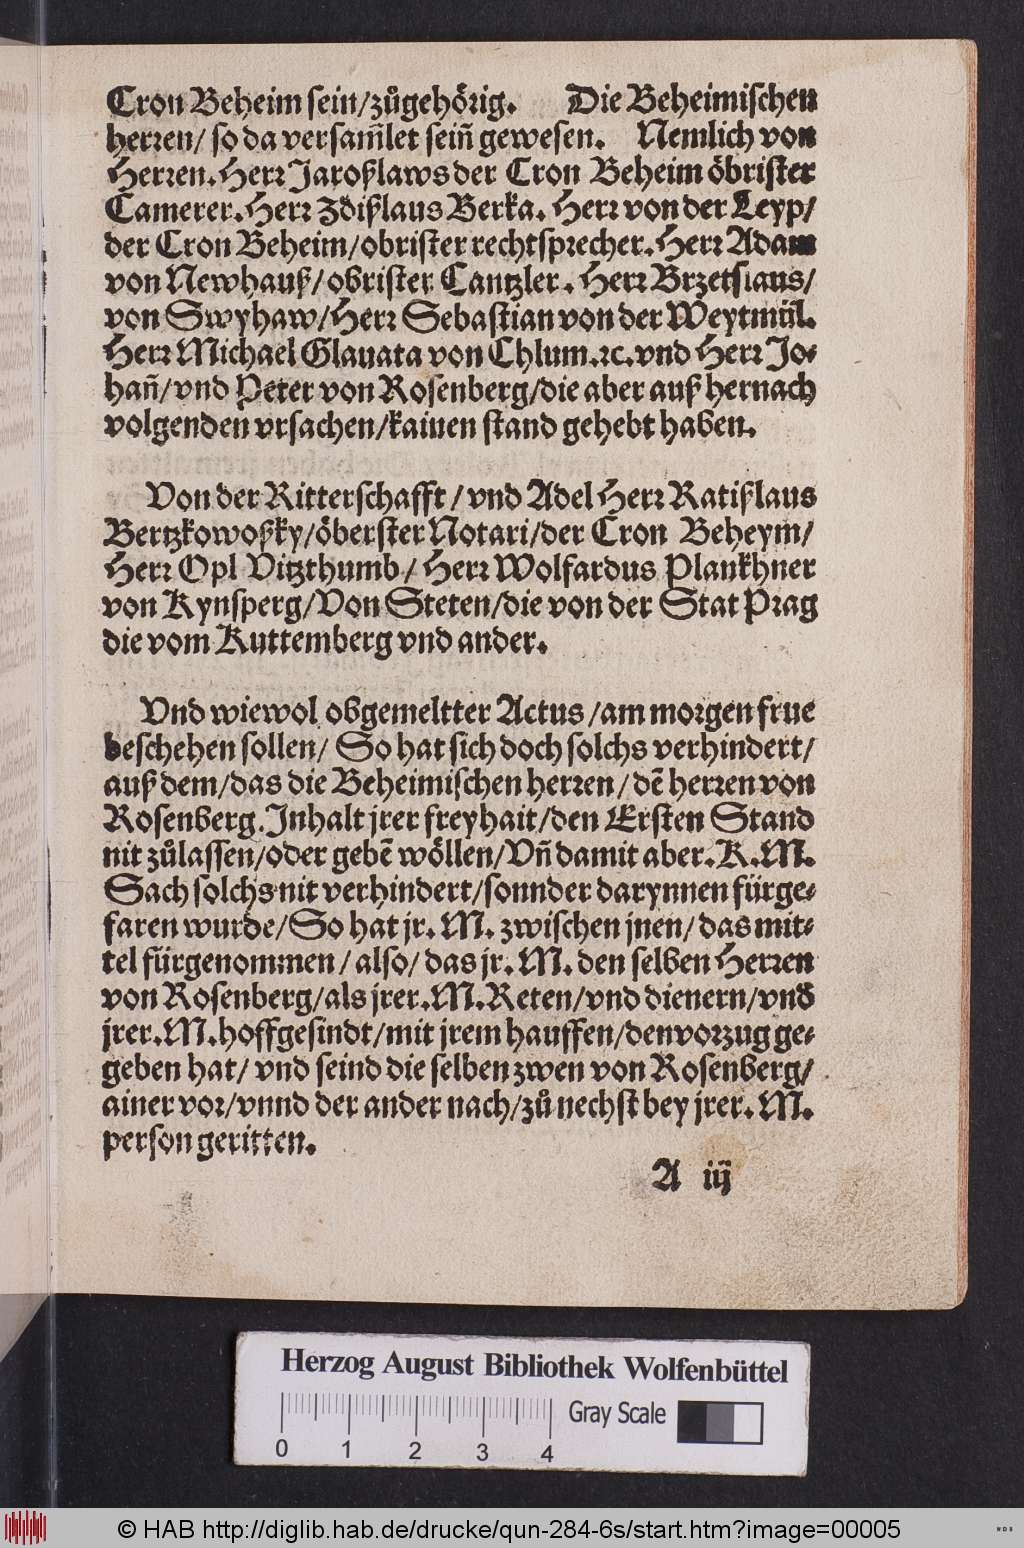 Cron Beheim sein/zůgehörig. Die Beheimischen
herren/ so da versam̄let sein̄ gewesen. Nemlich von
Herren. Herr Jaroßlaws der Cron Beheim öbrister
Camerer. Herr Zdißlaus Berka. Herr von der Leyp/
der Cron Beheim/obrister rechtsprecher. Herr Adam
von Newhauß/obrister Cantzler. Herr Brzetslaus/
von Swyhaw/Herr Sebastian von der Weytmül.
Herr Michael Glauata von Chlum.ꝛc.vnd Herr Jo⸗
han̄/vnd Peter von Rosenberg/die aber auß hernach
volgenden vrsachen/kainen stand gehebt haben.
Von der Ritterschafft/vnd Adel Herr Ratißlaus
Bertzkowoßky/öberster Notari/der Cron Beheym/
Herr Opl Vitzthumb/ Herr Wolfardus Plankhner
von Kynsperg/Von Steten/die von der Stat Prag
die vom Kuttemberg vnd ander.
Vnd wiewol obgemeltter Actus/am morgen frue
beschehen sollen/ So hat sich doch solchs verhindert/
auß dem/das die Beheimischen herren/dē herren von
Rosenberg. Inhalt jrer freyhait/den Ersten Stand
nit zůlassen/oder gebē wöllen/Vn̄ damit aber. K. M.
Sach solchs nit verhindert/sonnder darynnen fürge⸗
faren wurde/So hat jr. M. zwischen jnen/das mit⸗
tel fürgenommen/ also/ das jr. M. den selben Herren
von Rosenberg/als jrer. M. Reten/vnd dienern/vnd
jrer. M. hoffgesindt/mit jrem hauffen/den vorzug ge⸗
geben hat/ vnd seind die selben zwen von Rosenberg/
ainer vor/vnnd der ander nach/zů nechst bey jrer. M.
person geritten.
A iij
Herzog August Bibliothek Wolfenbüttel
Gray Scale
0 1 2 3 4
© HAB http://diglib.hab.de/drucke/qun-284-6s/start.htm?image=00005